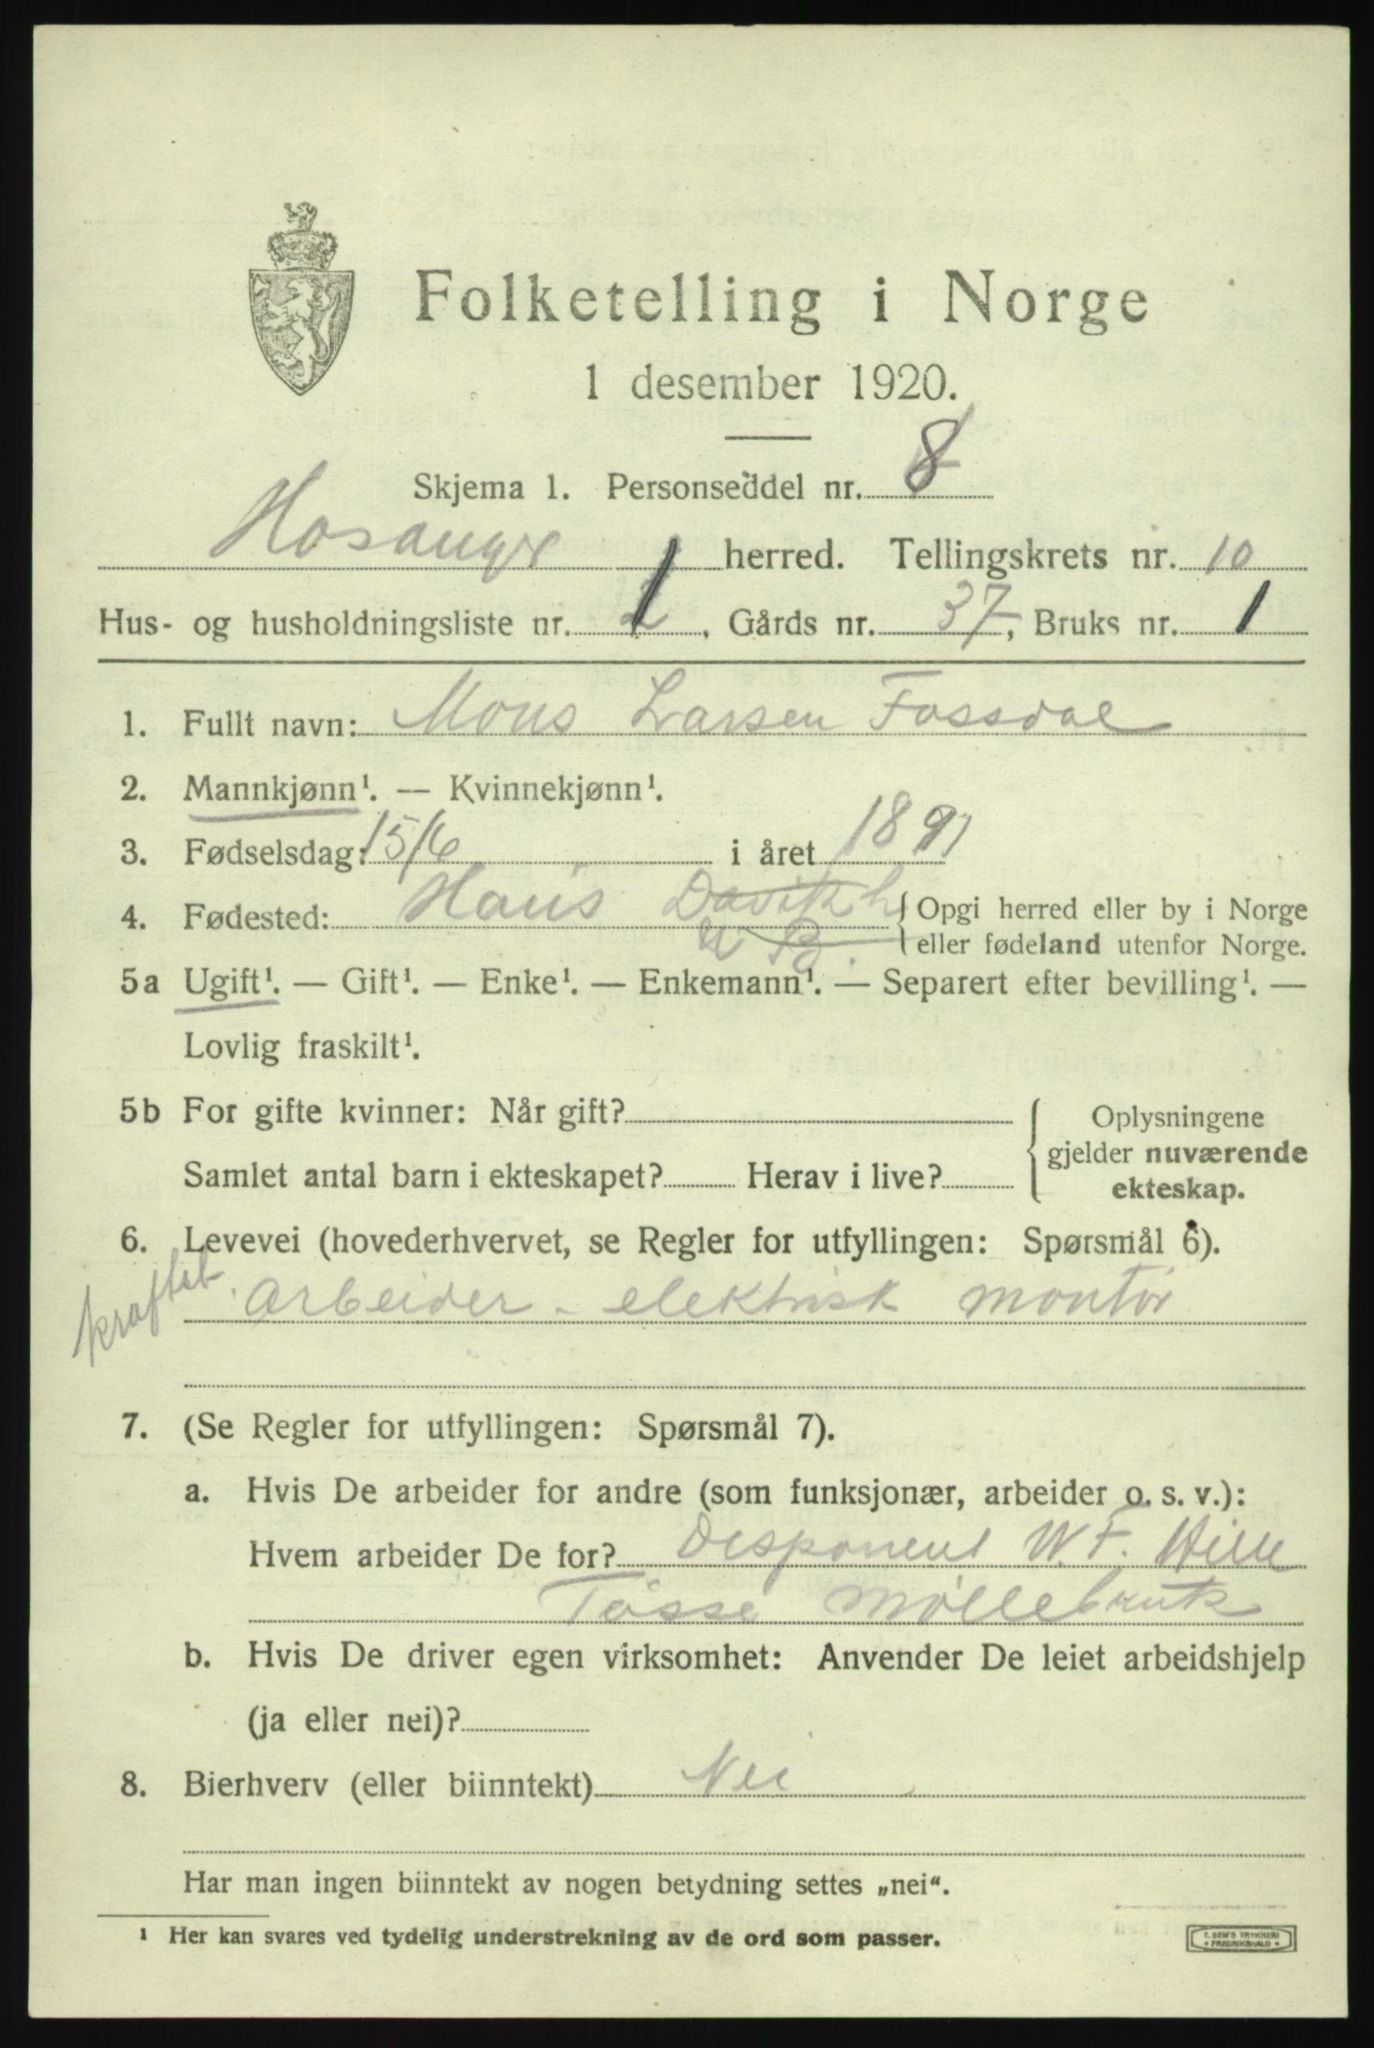 Folketelling i Norge
1 desember 1920.
Skjema 1. Personseddel nr. 8
Hosanger herred. Tellingskrets nr. 10
Hus- og husholdningsliste nr. 1, Gårds nr. 37, Bruks nr. 1
1. Fullt navn: Mons Larsen Fossdal
2. Mannkjønn¹. — Kvinnekjønn¹.
3. Fødselsdag: 15/6 i året 1891
4. Fødested: Haus { Opgi herred eller by i Norge
eller fødeland utenfor Norge.
5a Ugift¹. — Gift¹. — Enke¹. — Enkemann¹. — Separert efter bevilling¹. —
Lovlig fraskilt¹.
5b For gifte kvinner: Når gift?
Samlet antal barn i ekteskapet? Herav i live?
{ Oplysningene
gjelder nuværende
ekteskap.
6. Levevei (hovederhvervet, se Regler for utfyllingen: Spørsmål 6).
kraftst. arbeider - elektrisk montør
7. (Se Regler for utfyllingen: Spørsmål 7).
a. Hvis De arbeider for andre (som funksjonær, arbeider o. s. v.):
Hvem arbeider De for? Disponent W. F. Hille
Tøsse Møllebruk
b. Hvis De driver egen virksomhet: Anvender De leiet arbeidshjelp
(ja eller nei)?
8. Bierhverv (eller biinntekt) Nei
Har man ingen biinntekt av nogen betydning settes „nei“.
¹ Her kan svares ved tydelig understrekning av de ord som passer.
E. SEM'S TRYKKERI
FREDRIKSHALD